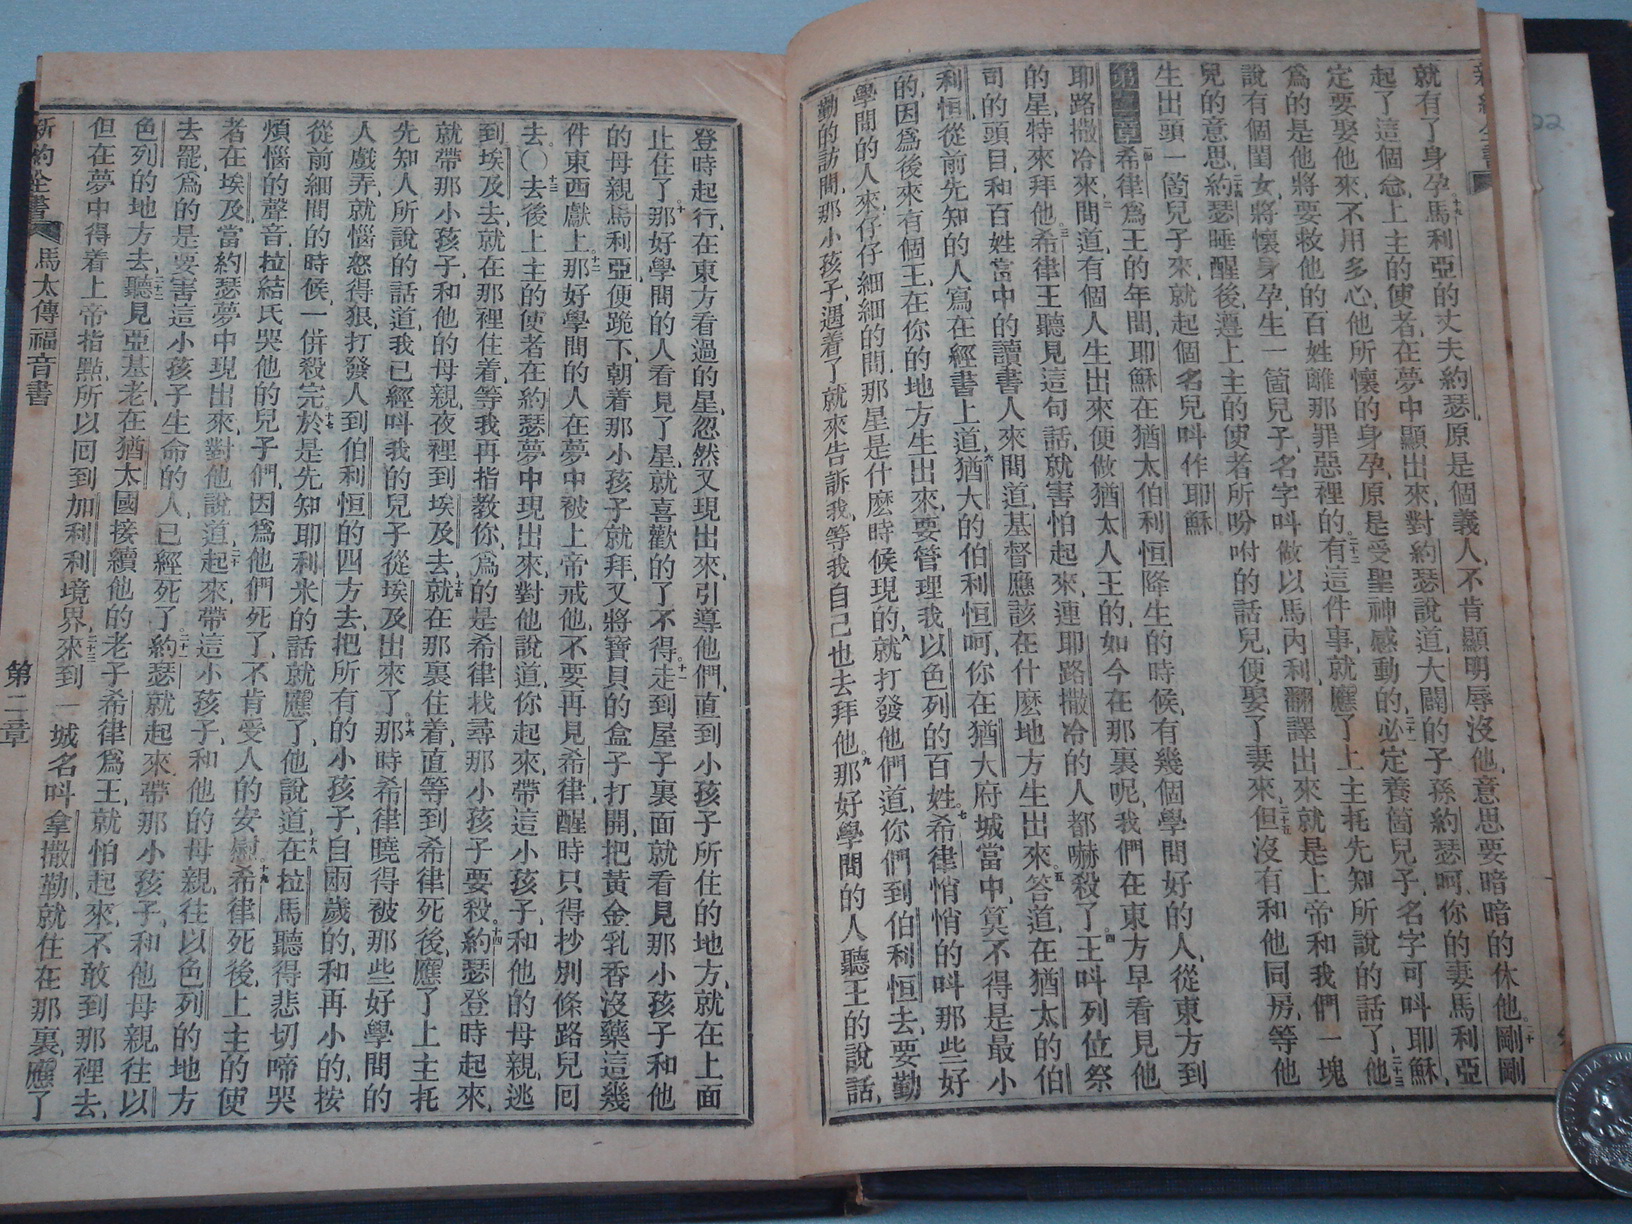 新約全書
就有了身孕、十九馬利亞的丈夫約瑟、原是個義人、不肯顯明辱沒他、意思要暗暗的休他。二十剛剛
起了這個念、上主的使者、在夢中顯出來、對約瑟說道、大闢的子孫約瑟呵、你的妻馬利亞
定要娶他來、不用多心、他所懷的身孕、原是受聖神感動的。二十一必定養箇兒子、名字可叫耶穌、
爲的是他將要救他的百姓離那罪惡裡的。二十二有這件事、就應了上主托先知所說的話了。二十三他
說有個閨女、將懷身孕、生一箇兒子、名字叫做以馬內利、翻譯出來、就是上帝和我們一塊
兒的意思。二十四約瑟睡醒後、遵上主的使者所吩咐的話兒、便娶了妻來、二十五但沒有和他同房、等他
生出頭一箇兒子來、就起個名兒叫作耶穌
第二章一希律爲王的年間、耶穌在猶太伯利恒降生的時候、有幾個學問好的人、從東方到
耶路撒冷來、二問道、有個人生出來便做猶太人王的、如今在那裏呢、我們在東方早看見他
的星、特來拜他。三希律王聽見這句話、就害怕起來、連耶路撒冷的人都嚇殺了。四王叫列位祭
司的頭目、和百姓當中的讀書人來問道、基督應該在什麼地方生出來。五答道、在猶太的伯
利恒、從前先知的人寫在經書上道、六猶大的伯利恒呵、你在猶大府城當中、算不得是最小
的、因爲後來有個王、在你的地方生出來、要管理我以色列的百姓。七希律悄悄的叫那些好
學問的人來、仔仔細細的問、那星是什麼時候現的、八就打發他們道、你們到伯利恒去、要勤
勤的訪問那小孩子、遇着了就來告訴我、等我自己也去拜他。九那好學問的人聽王的說話、
登時起行、在東方看過的星、忽然又現出來、引導他們、直到小孩子所住的地方、就在上面
止住了。十那好學問的人看見了星、就喜歡的了不得。十一走到屋子裏面就看見那小孩子和他
的母親馬利亞、便跪下、朝着那小孩子就拜、又將寶貝的盒子打開、把黃金乳香沒藥這幾
件東西獻上。十二那好學問的人在夢中被上帝戒他、不要再見希律、醒時只得抄別條路兒回
去。〇十三去後上主的使者在約瑟夢中現出來、對他說道、你起來、帶這小孩子、和他的母親、逃
到埃及去、就在那裡住着、等我再指教你、爲的是希律找尋那小孩子要殺。十四約瑟登時起來、
就帶那小孩子、和他的母親、夜裡到埃及去、十五就在那裏住着、直等到希律死後、應了上主托
先知人所說的話道、我已經叫我的兒子從埃及出來了。十六那時希律曉得被那些好學問的
人戲弄、就惱怒得狠、打發人到伯利恒的四方去、把所有的小孩子、自兩歲的、和再小的、按
從前細問的時候、一併殺完、十七於是先知耶利米的話就應了、他說道、十八在拉馬聽得悲切啼哭
煩惱的聲音、拉結氏哭他的兒子們、因爲他們死了、不肯受人的安慰。十九希律死後、上主的使
者在埃及當約瑟夢中現出來、對他說道、二十起來、帶這小孩子、和他的母親、往以色列的地方
去罷、爲的是要害這小孩子生命的人、已經死了。二十一約瑟就起來、帶那小孩子、和他母親、往以
色列的地方去、二十二聽見亞基老在猶太國接續他的老子希律爲王、就怕起來、不敢到那裡去、
但在夢中得着上帝指點、所以回到加利利境界、二十三來到一城名叫拿撒勒、就住在那裏、應了
新約全書 馬太傳福音書 第二章